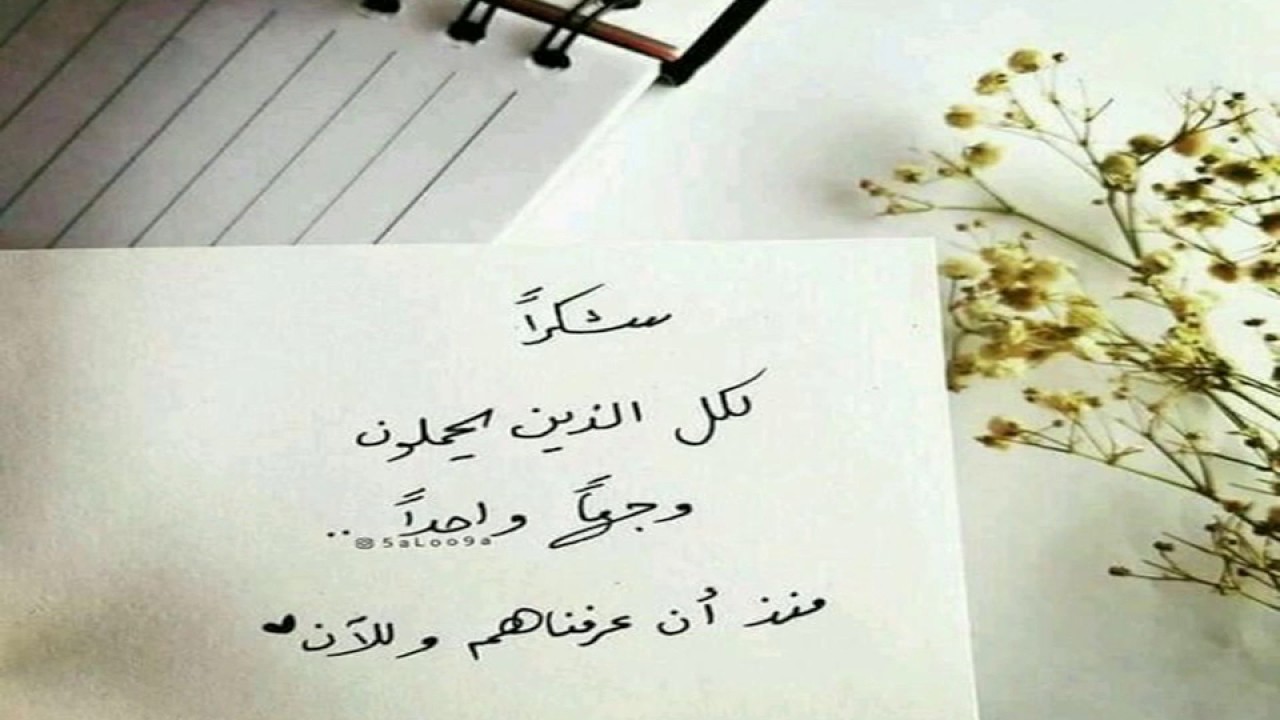 شكراً
لكل الذين يحملون
وجهاً واحداً ..
@5aLoo9a
منذ أن عرفناهم وللآن